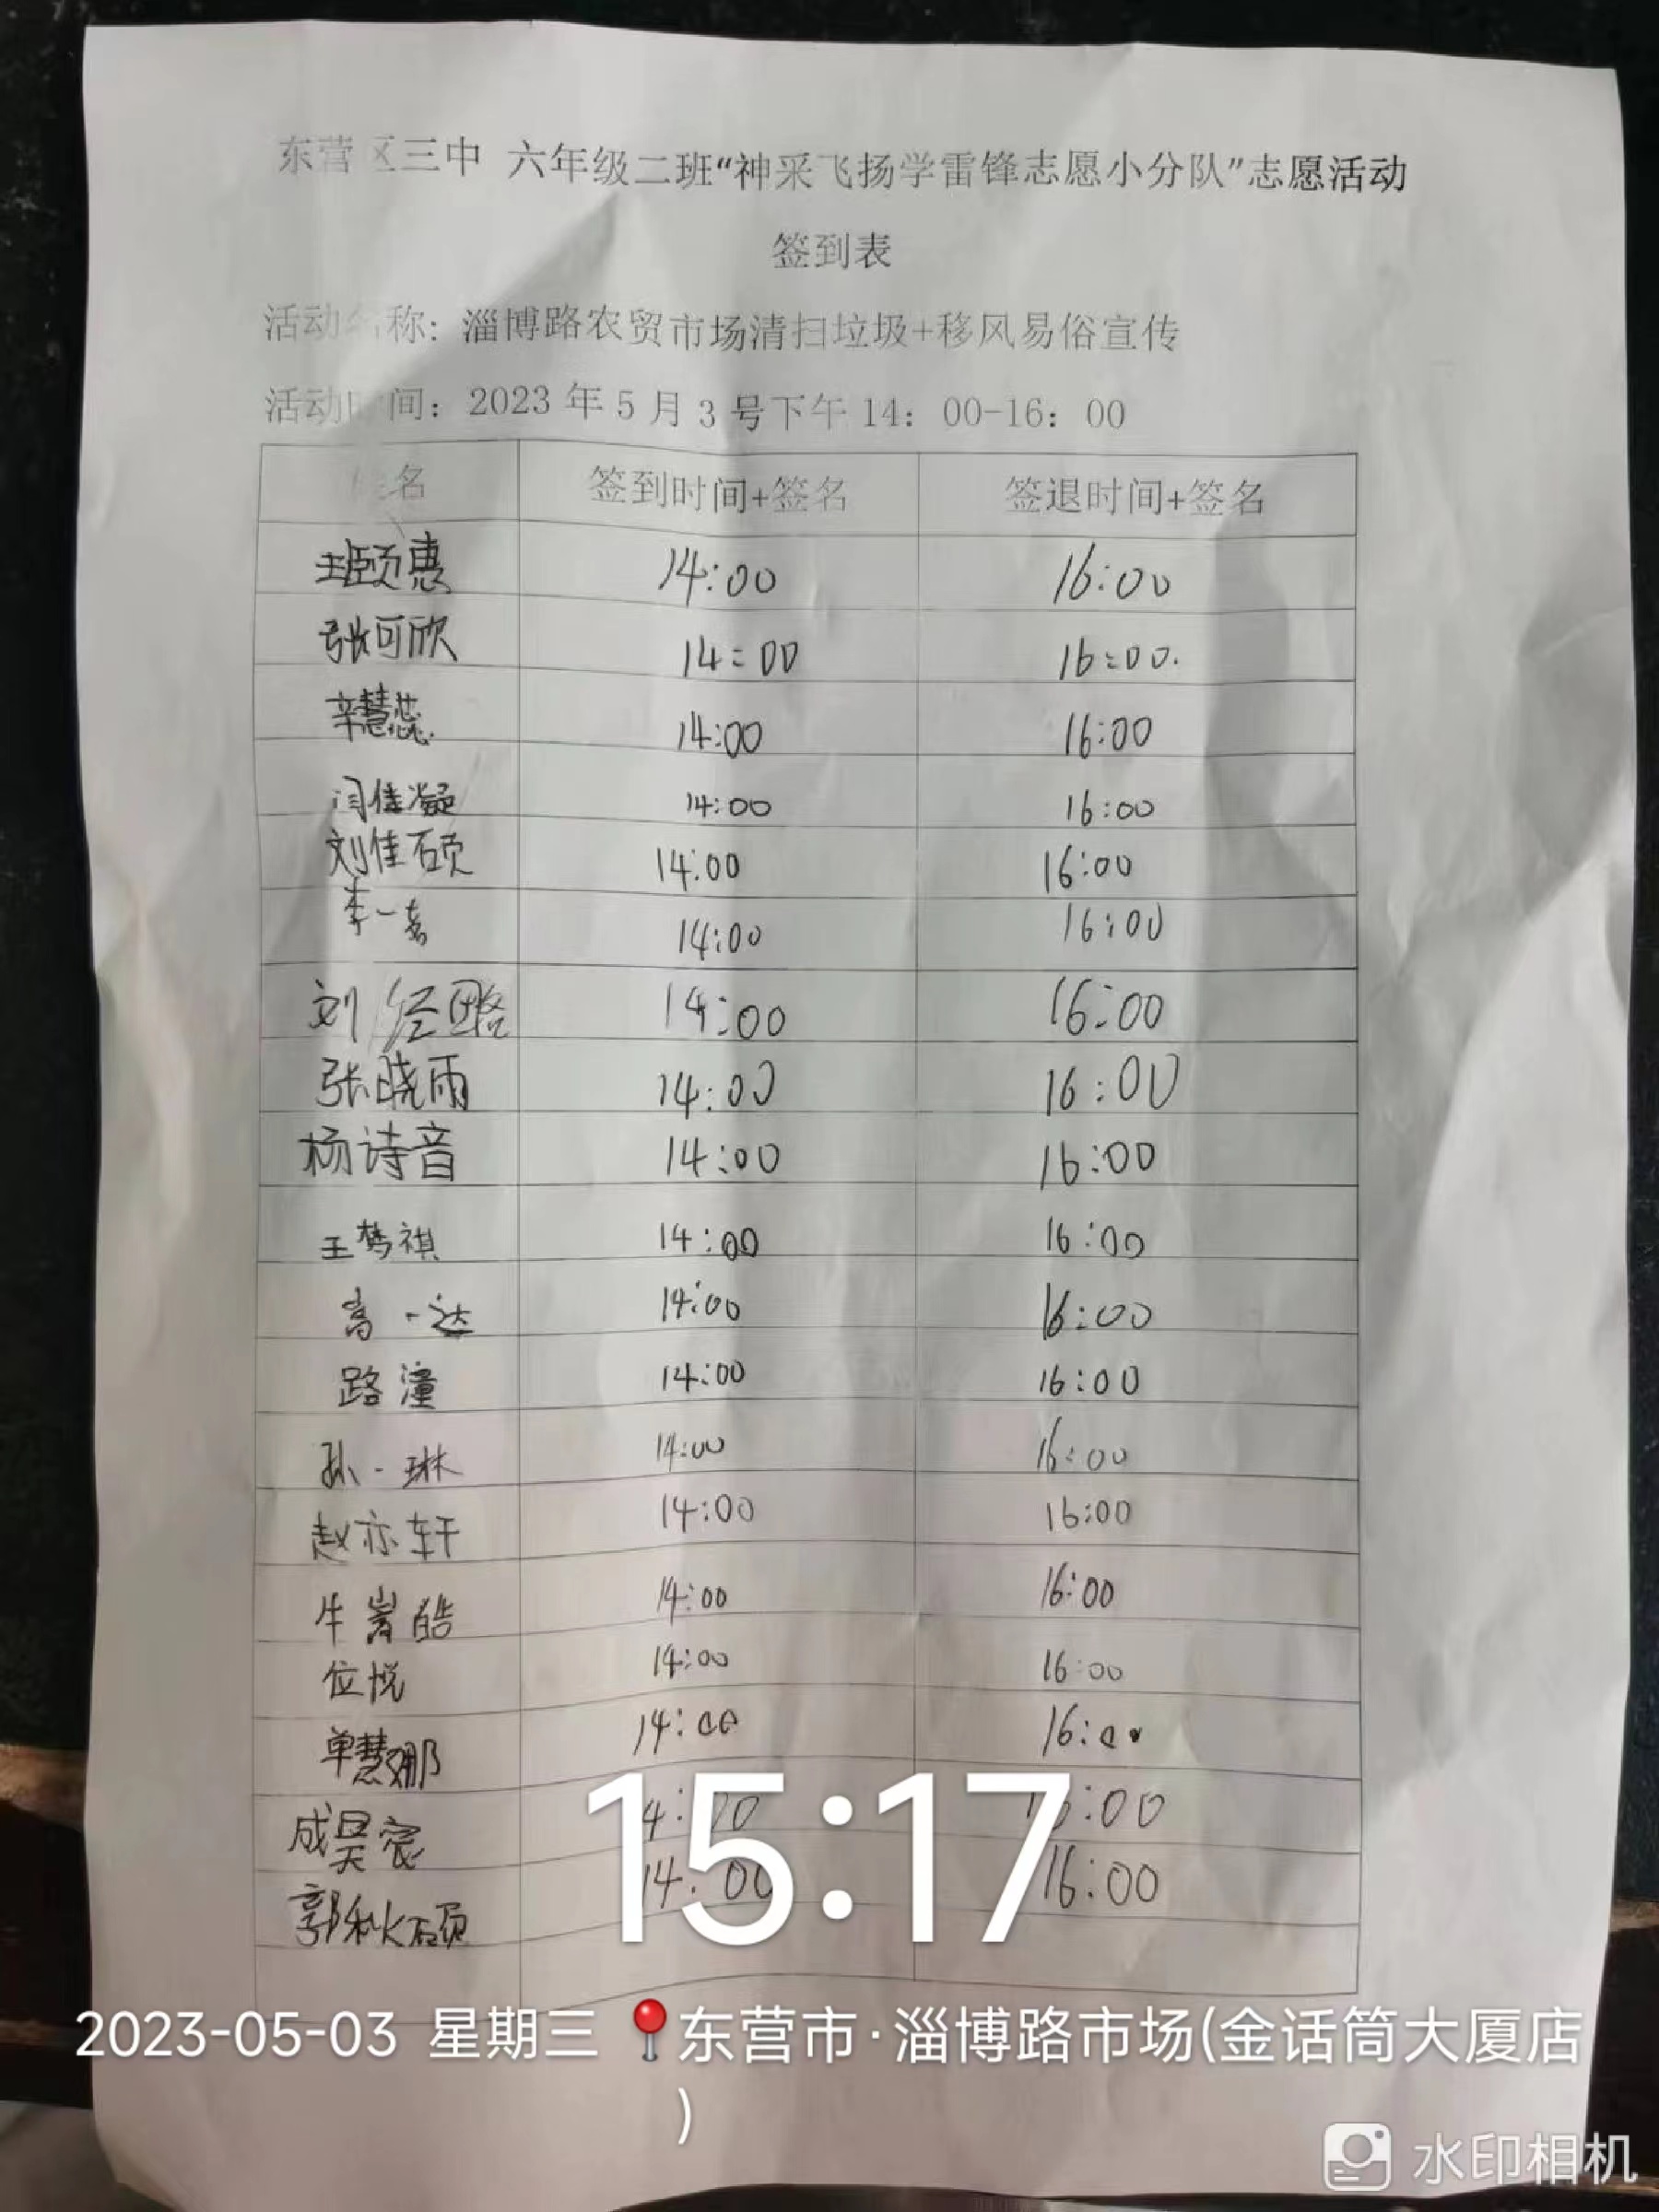 东营区三中 六年级二班“神采飞扬学雷锋志愿小分队”志愿活动
签到表
活动名称: 淄博路农贸市场清扫垃圾+移风易俗宣传
活动时间: 2023年5月3号下午14: 00-16: 00
姓名 签到时间+签名 签退时间+签名
王颐惠 14:00 16:00
张可欣 14:00 16:00.
辛慧蕊 14:00 16:00
闫佳凝 14:00 16:00
刘佳硕 14:00 16:00
李一 14:00 16:00
刘经略 14:00 16:00
张晓雨 14:00 16:00
杨诗音 14:00 16:00
王梦祺 14:00 16:00
高一达 14:00 16:00
路潼 14:00 16:00
孙一琳 14:00 16:00
赵亦轩 14:00 16:00
牛嵩皓 14:00 16:00
位悦 14:00 16:00
单慧娜 14:00 16:00
成昊宸 14:00 16:00
郭秋硕 14:00 16:00
15:17
2023-05-03 星期三 东营市·淄博路市场(金话筒大厦店
)
水印相机